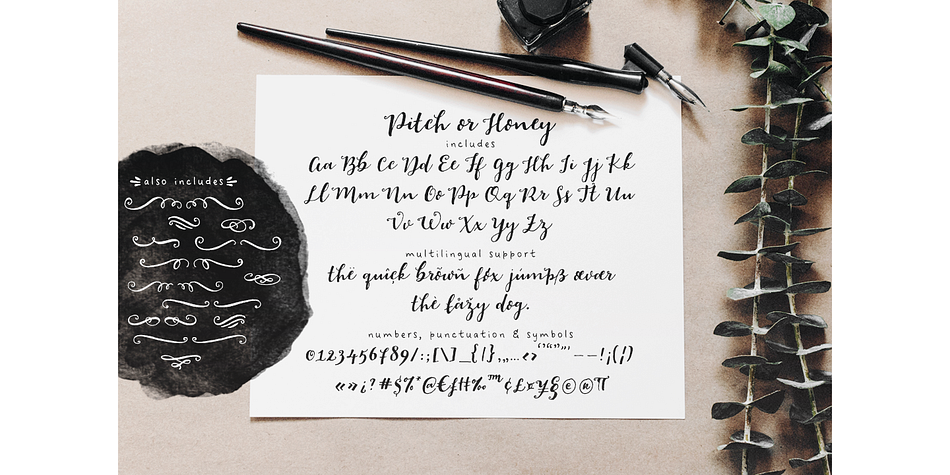 Pitch or Honey
includes
Aa Bb Cc Dd Ee Ff Gg Hh Ii Jj Kk
Ll Mm Nn Oo Pp Qq Rr Ss Tt Uu
Vv Ww Xx Yy Zz
multilingual support
thė quïçk brõwñ fóx júmpß œvær
thė łåžy dog.
numbers, punctuation & symbols
0123456789/:;[\]_{|},,,…‹›‘’“”‚„–—!¡(¦)
«»¿?#$%*@€ƒ™¢£¤¥§©®¶
also includes